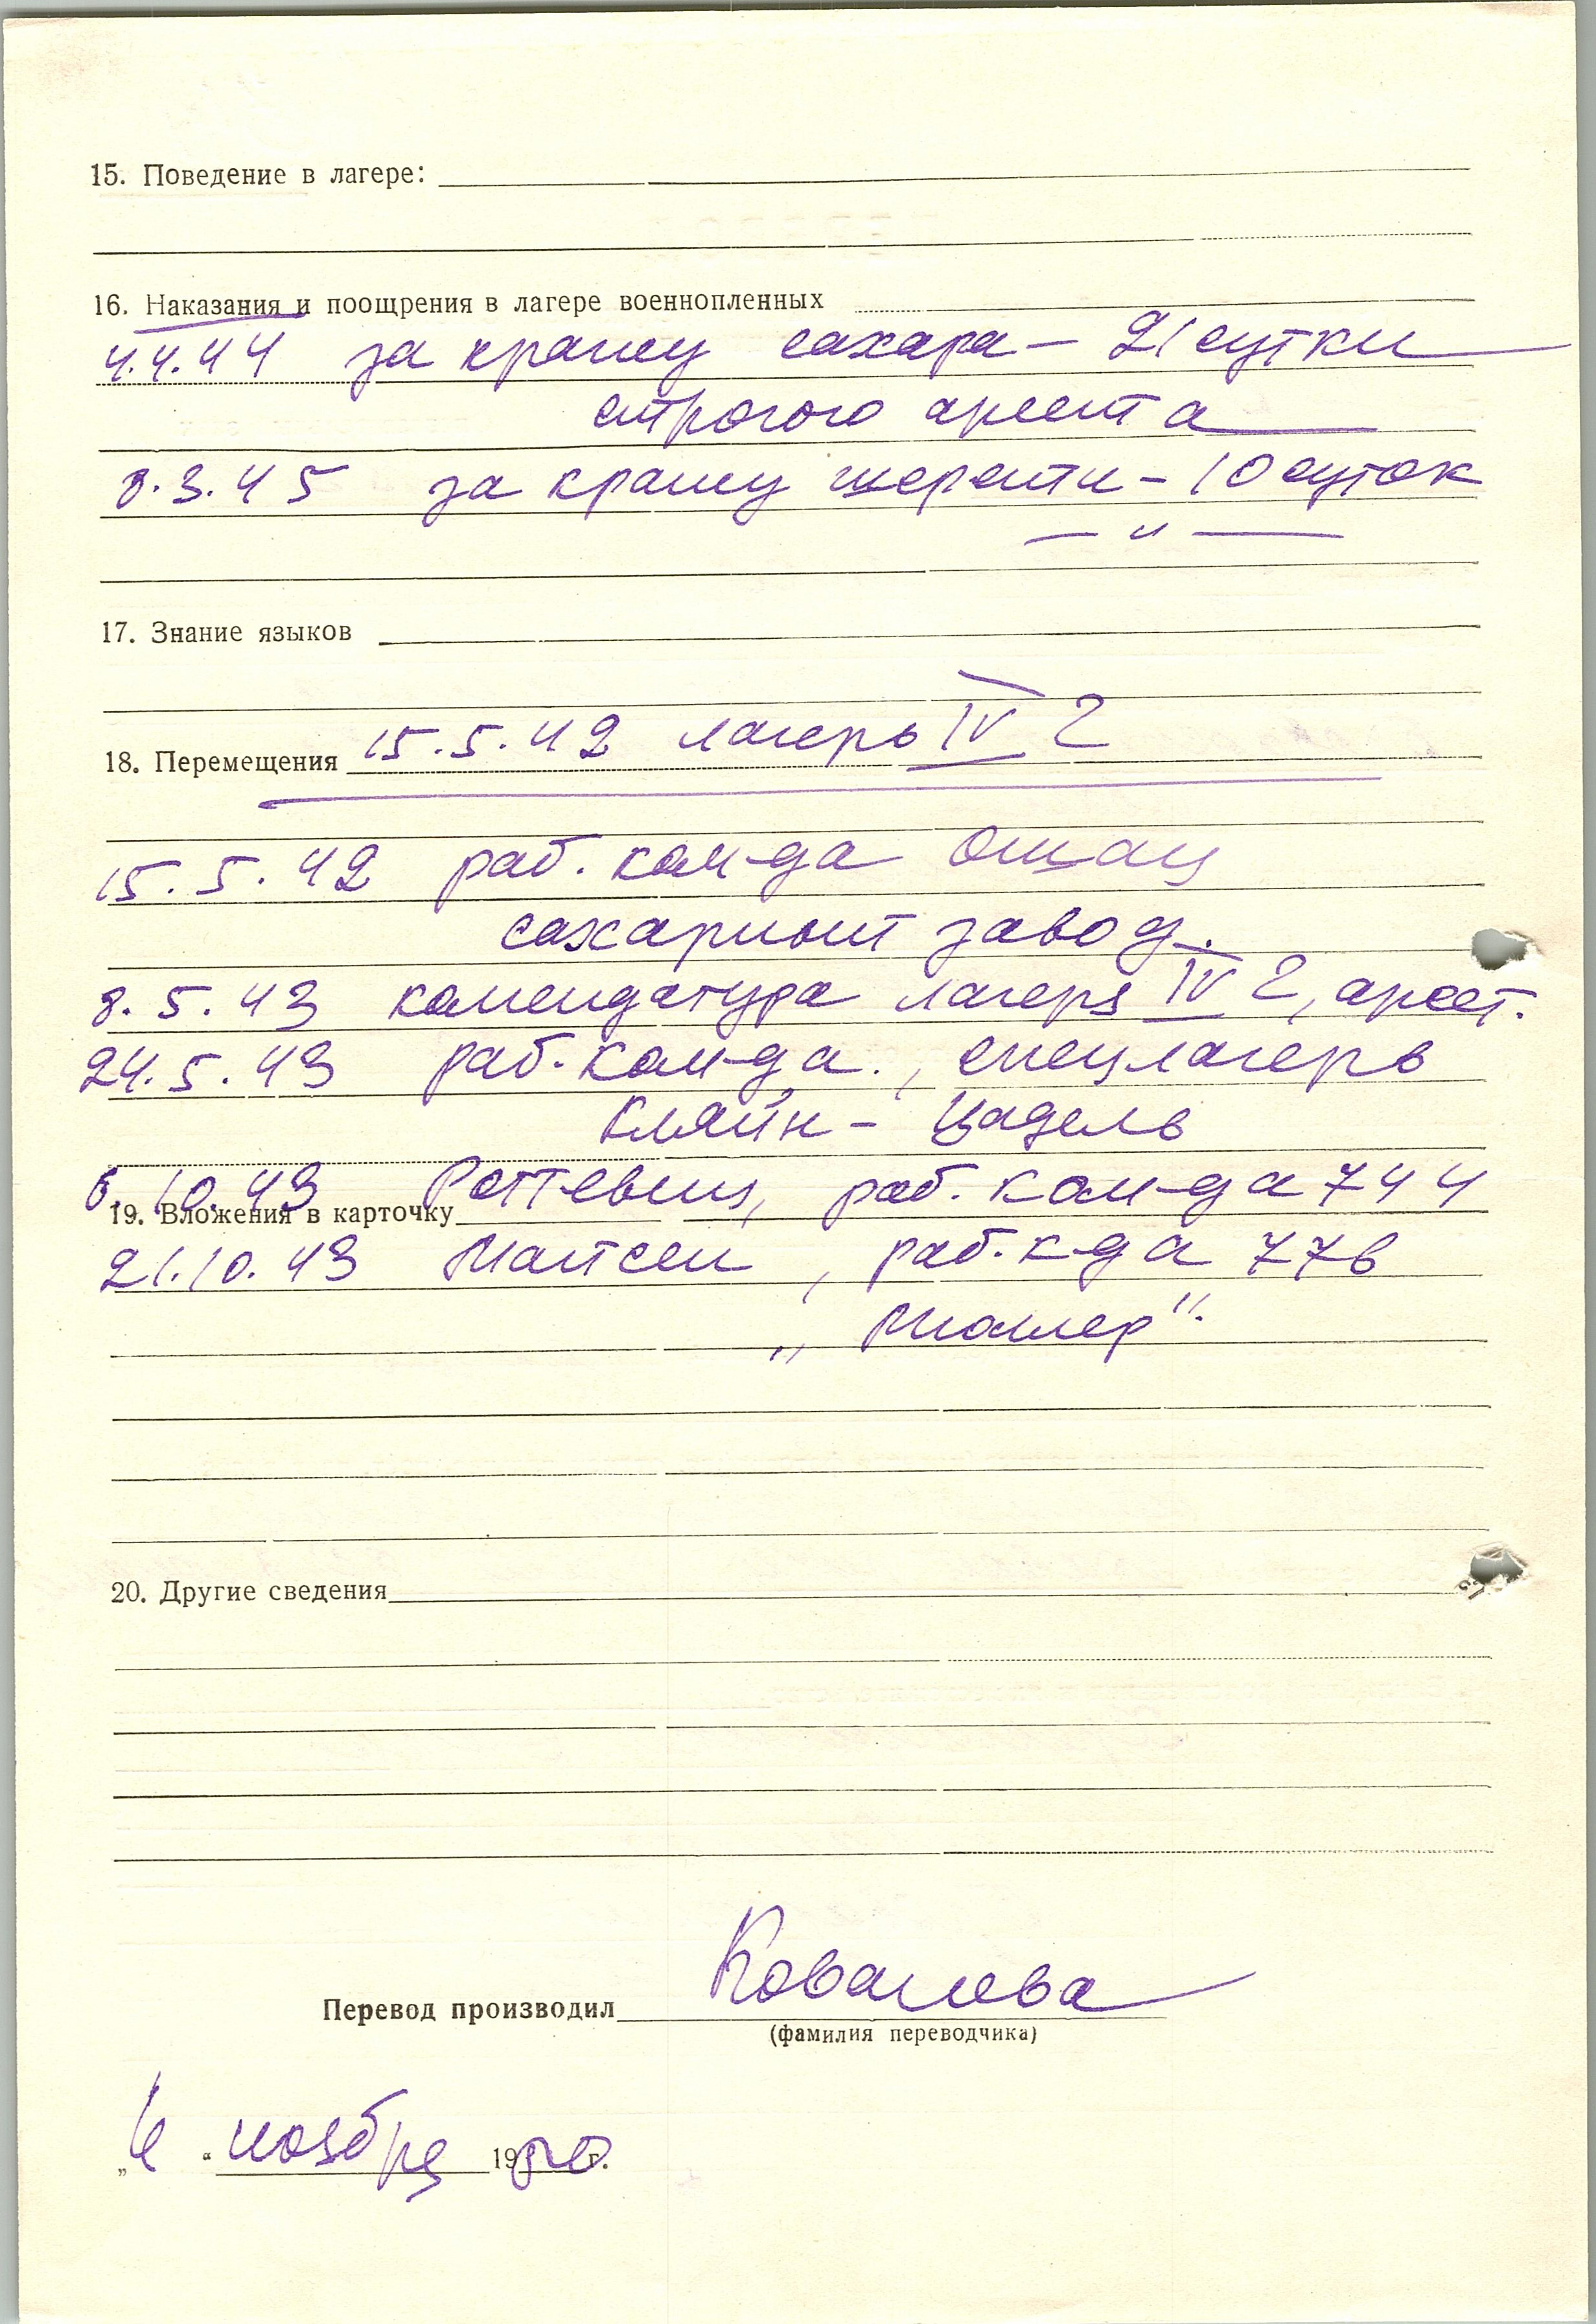 15. Поведение в лагере:
16. Наказания и поощрения в лагере военнопленных
4.4.44 за кражу сахара — 21 сутки
строгого ареста
8.3.45 за кражу шерсти – 10 суток
— " —
17. Знание языков
18. Перемещения 15.5.42 лагерь IV Г
15.5.42 раб. ком-да Ошац
сахарный завод.
8.5.43 комендатура лагеря IV Г, арест.
24.5.43 раб. ком-да., спецлагерь
Кляйн – Цадель
6.10.43 Роттевиц, раб. ком-да 744
19. Вложения в карточку
21.10.43 Майсен, раб. к-да 77в
„Мюллер".
20. Другие сведения
Перевод производил Ковалева
(фамилия переводчика)
ноября 19 г.